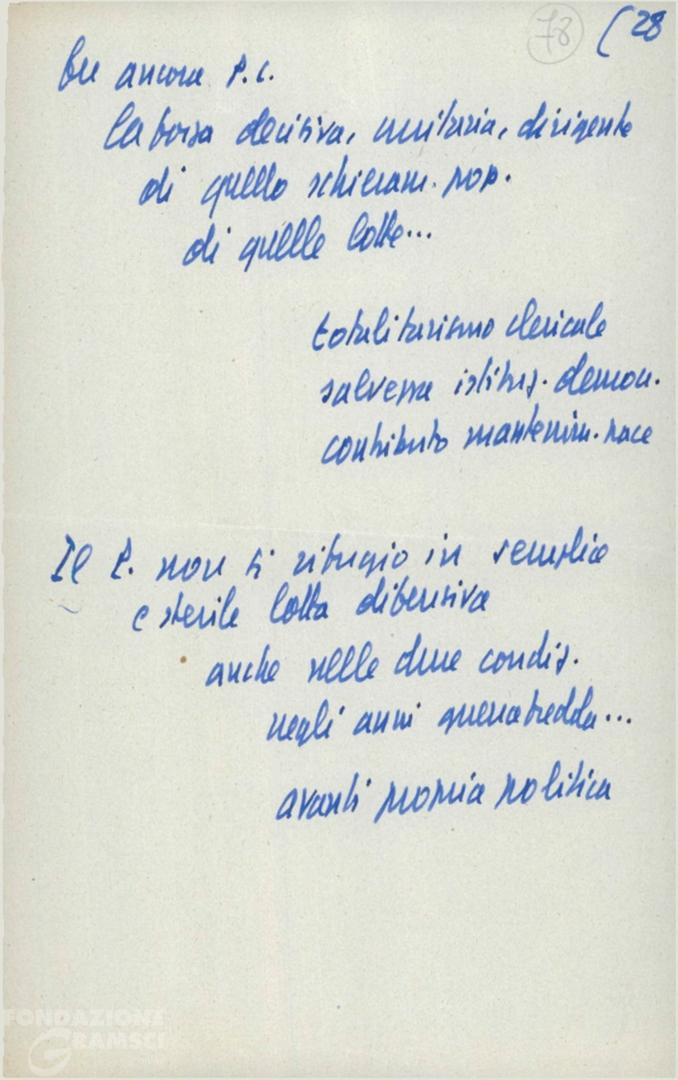 78 (28
Fu ancora P.C.
la forza decisiva, unitaria, dirigente
di quello schieram. pop.
di quelle lotte...
totalitarismo clericale
salvezza istituz. democr.
contributo mantenim. pace
Il P. non si rifugiò in semplice
e sterile lotta difensiva
anche nelle dure condiz.
negli anni guerra fredda...
avanti propria politica
FONDAZIONE
GRAMSCI